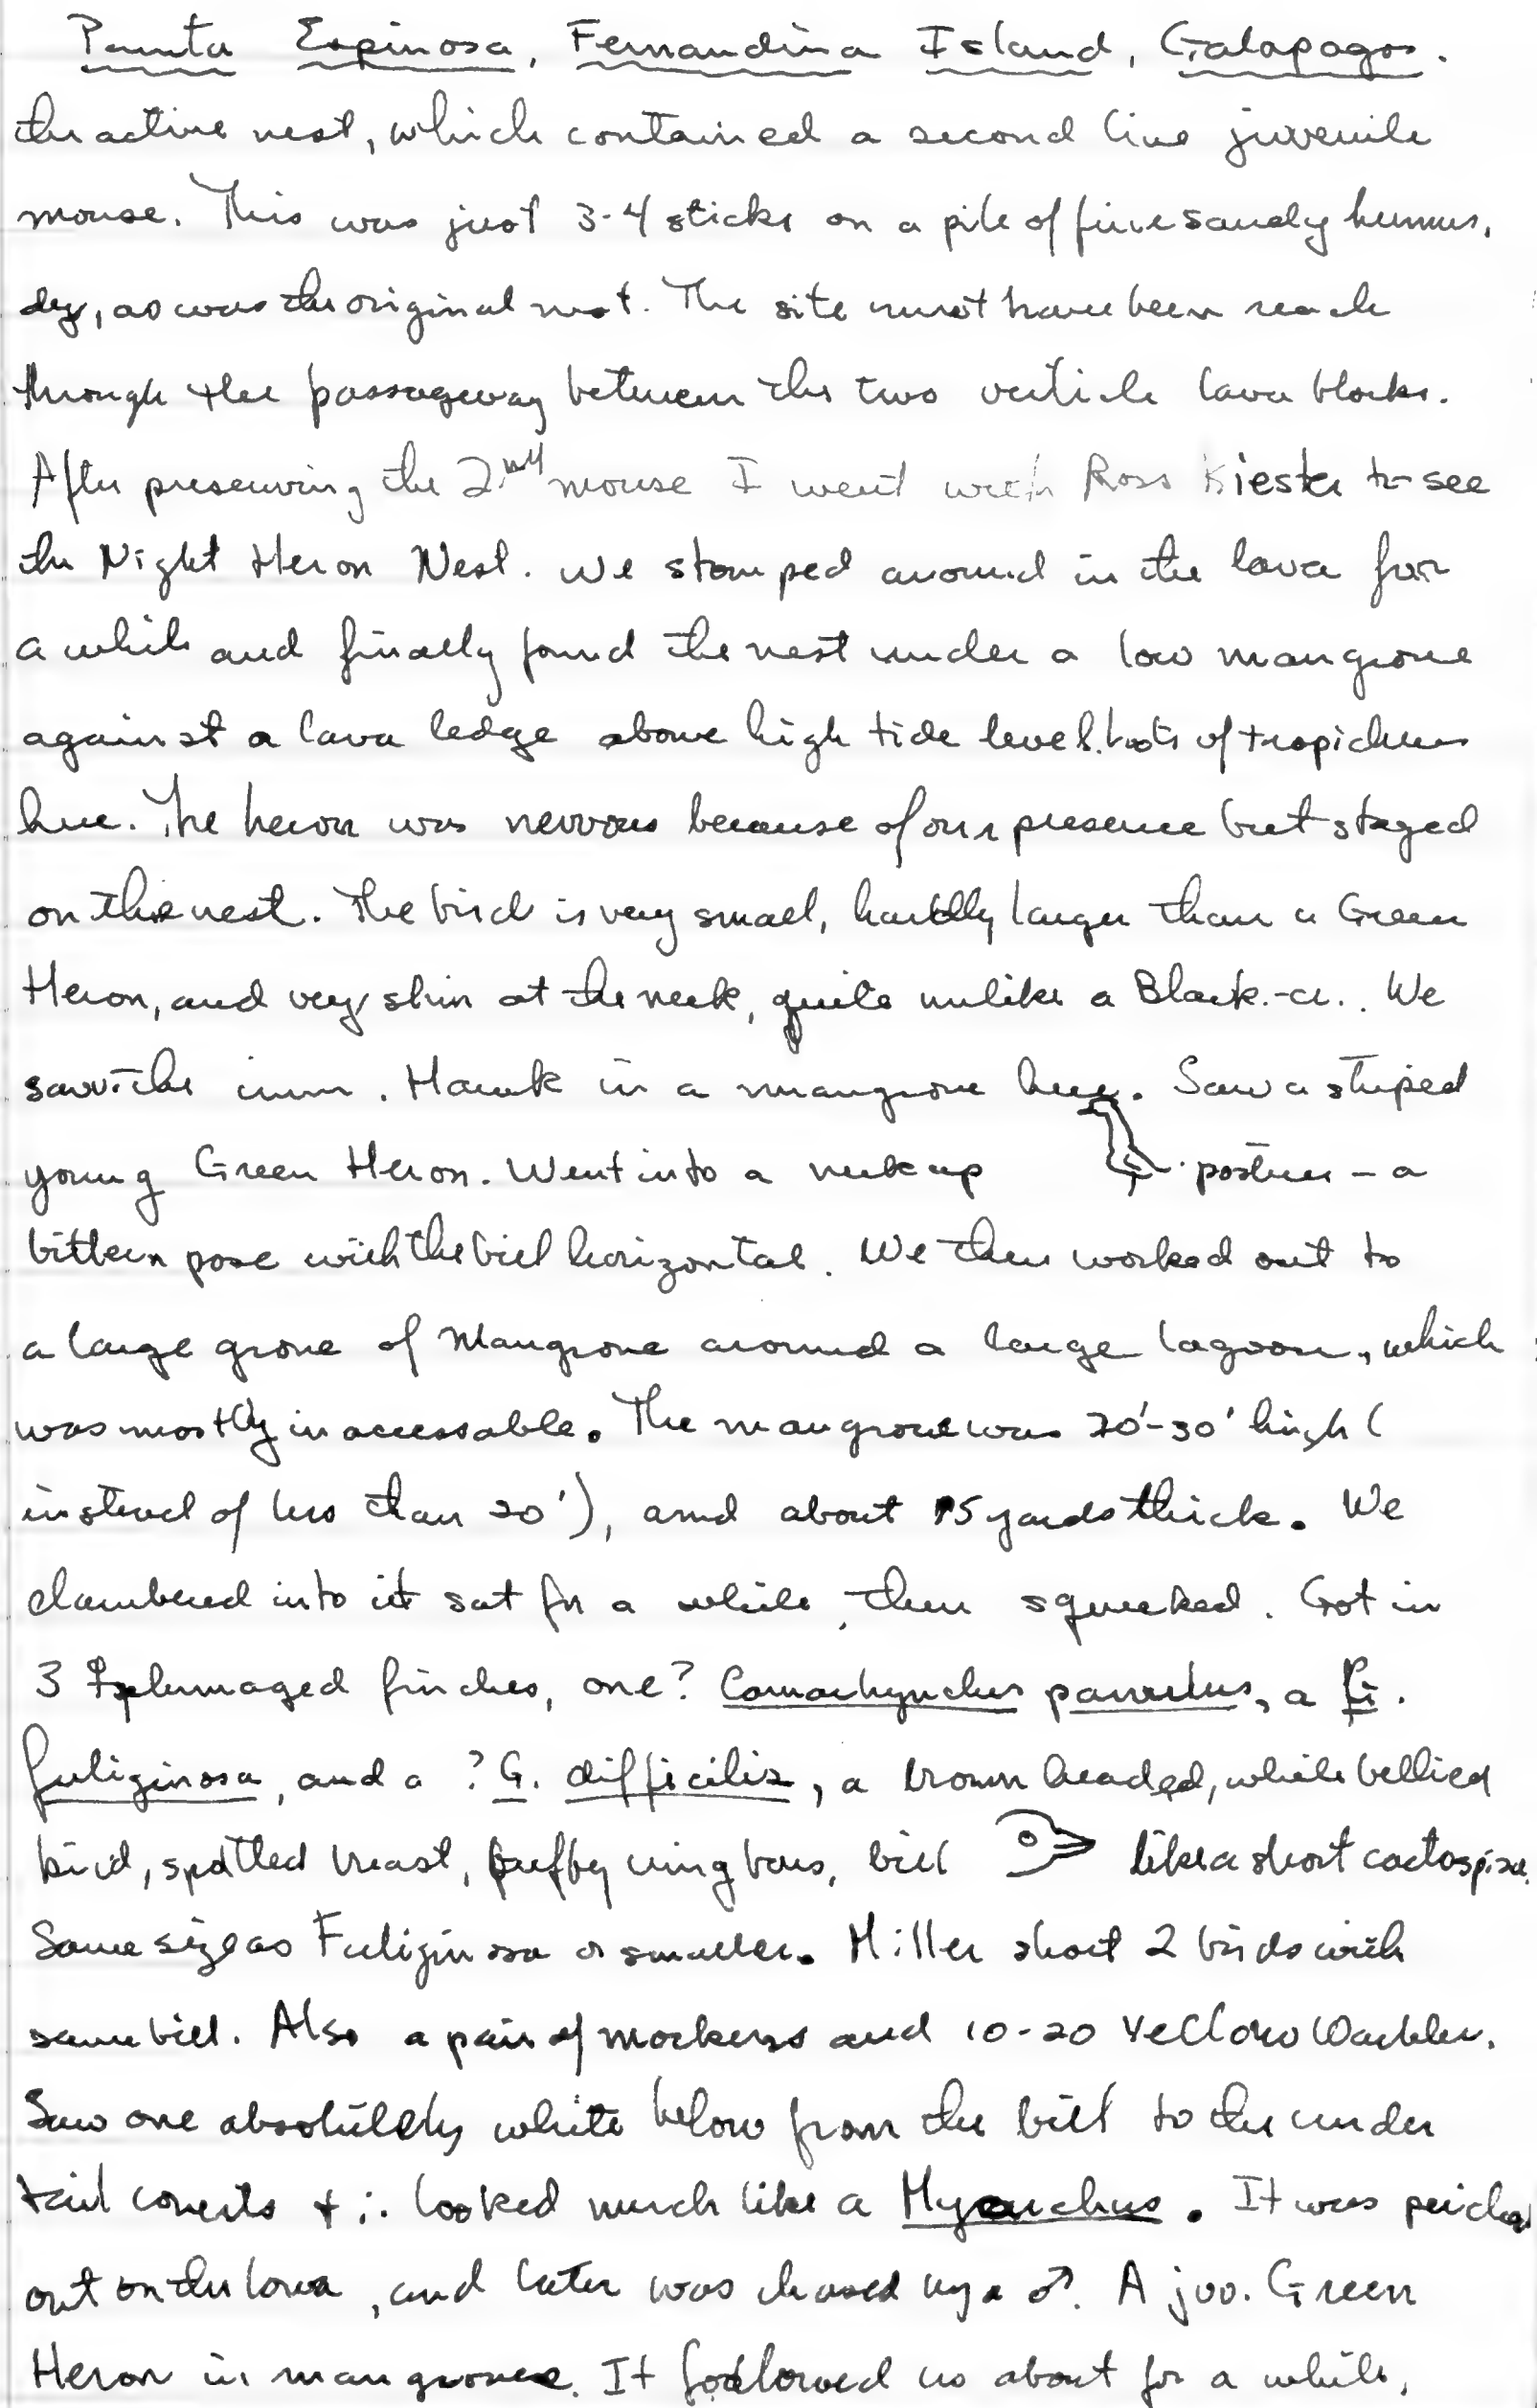 Punta Espinosa, Fernandina Island, Galapagos.
the active nest, which contained a second live juvenile
mouse. This was just 3-4 sticks on a pile of fine sandy humus,
dry, as was the original nest. The site must have been reach
through the passageway between the two verticle lava blocks.
After preserving the 2nd mouse I went with Ross Kiester to see
the Night Heron Nest. We stomped around in the lava for
a while and finally found the nest under a low mangrove
against a lava ledge above high tide level. Lots of tropidurus
here. The heron was nervous because of our presence but stayed
on the nest. The bird is very small, hardly larger than a Green
Heron, and very slim at the neck, quite unlike a Black.-cr.. We
saw the imm. Hawk in a mangrove here. Saw a striped
young Green Heron. Went into a neck up posture - a
bittern pose with the bill horizontal. We then worked out to
a large grove of Mangrove around a large lagoon, which
was mostly inaccessable. The mangrove was 20'-30' high (
instead of less than 20'), and about 15 yards thick. We
clambered into it sat for a while, then squeeked. Got in
3 ♀ plumaged finches, one? Camarhynchus parvulus, a G.
fuliginosa, and a ? G. difficilis, a brown headed, white bellied
bird, spotted breast, buffy wing bars, bill like a short cactospiza.
Same size as Fuliginosa or smaller. Miller shot 2 birds with
same bill. Also a pair of mockers and 10-20 Yellow Warbler.
Saw one absolutely white below from the bill to the under
tail coverts + ∴ looked much like a Myiarchus. It was perched
out on the lava, and later was chased by a ♂. A juv. Green
Heron in mangrove. It followed us about for a while,